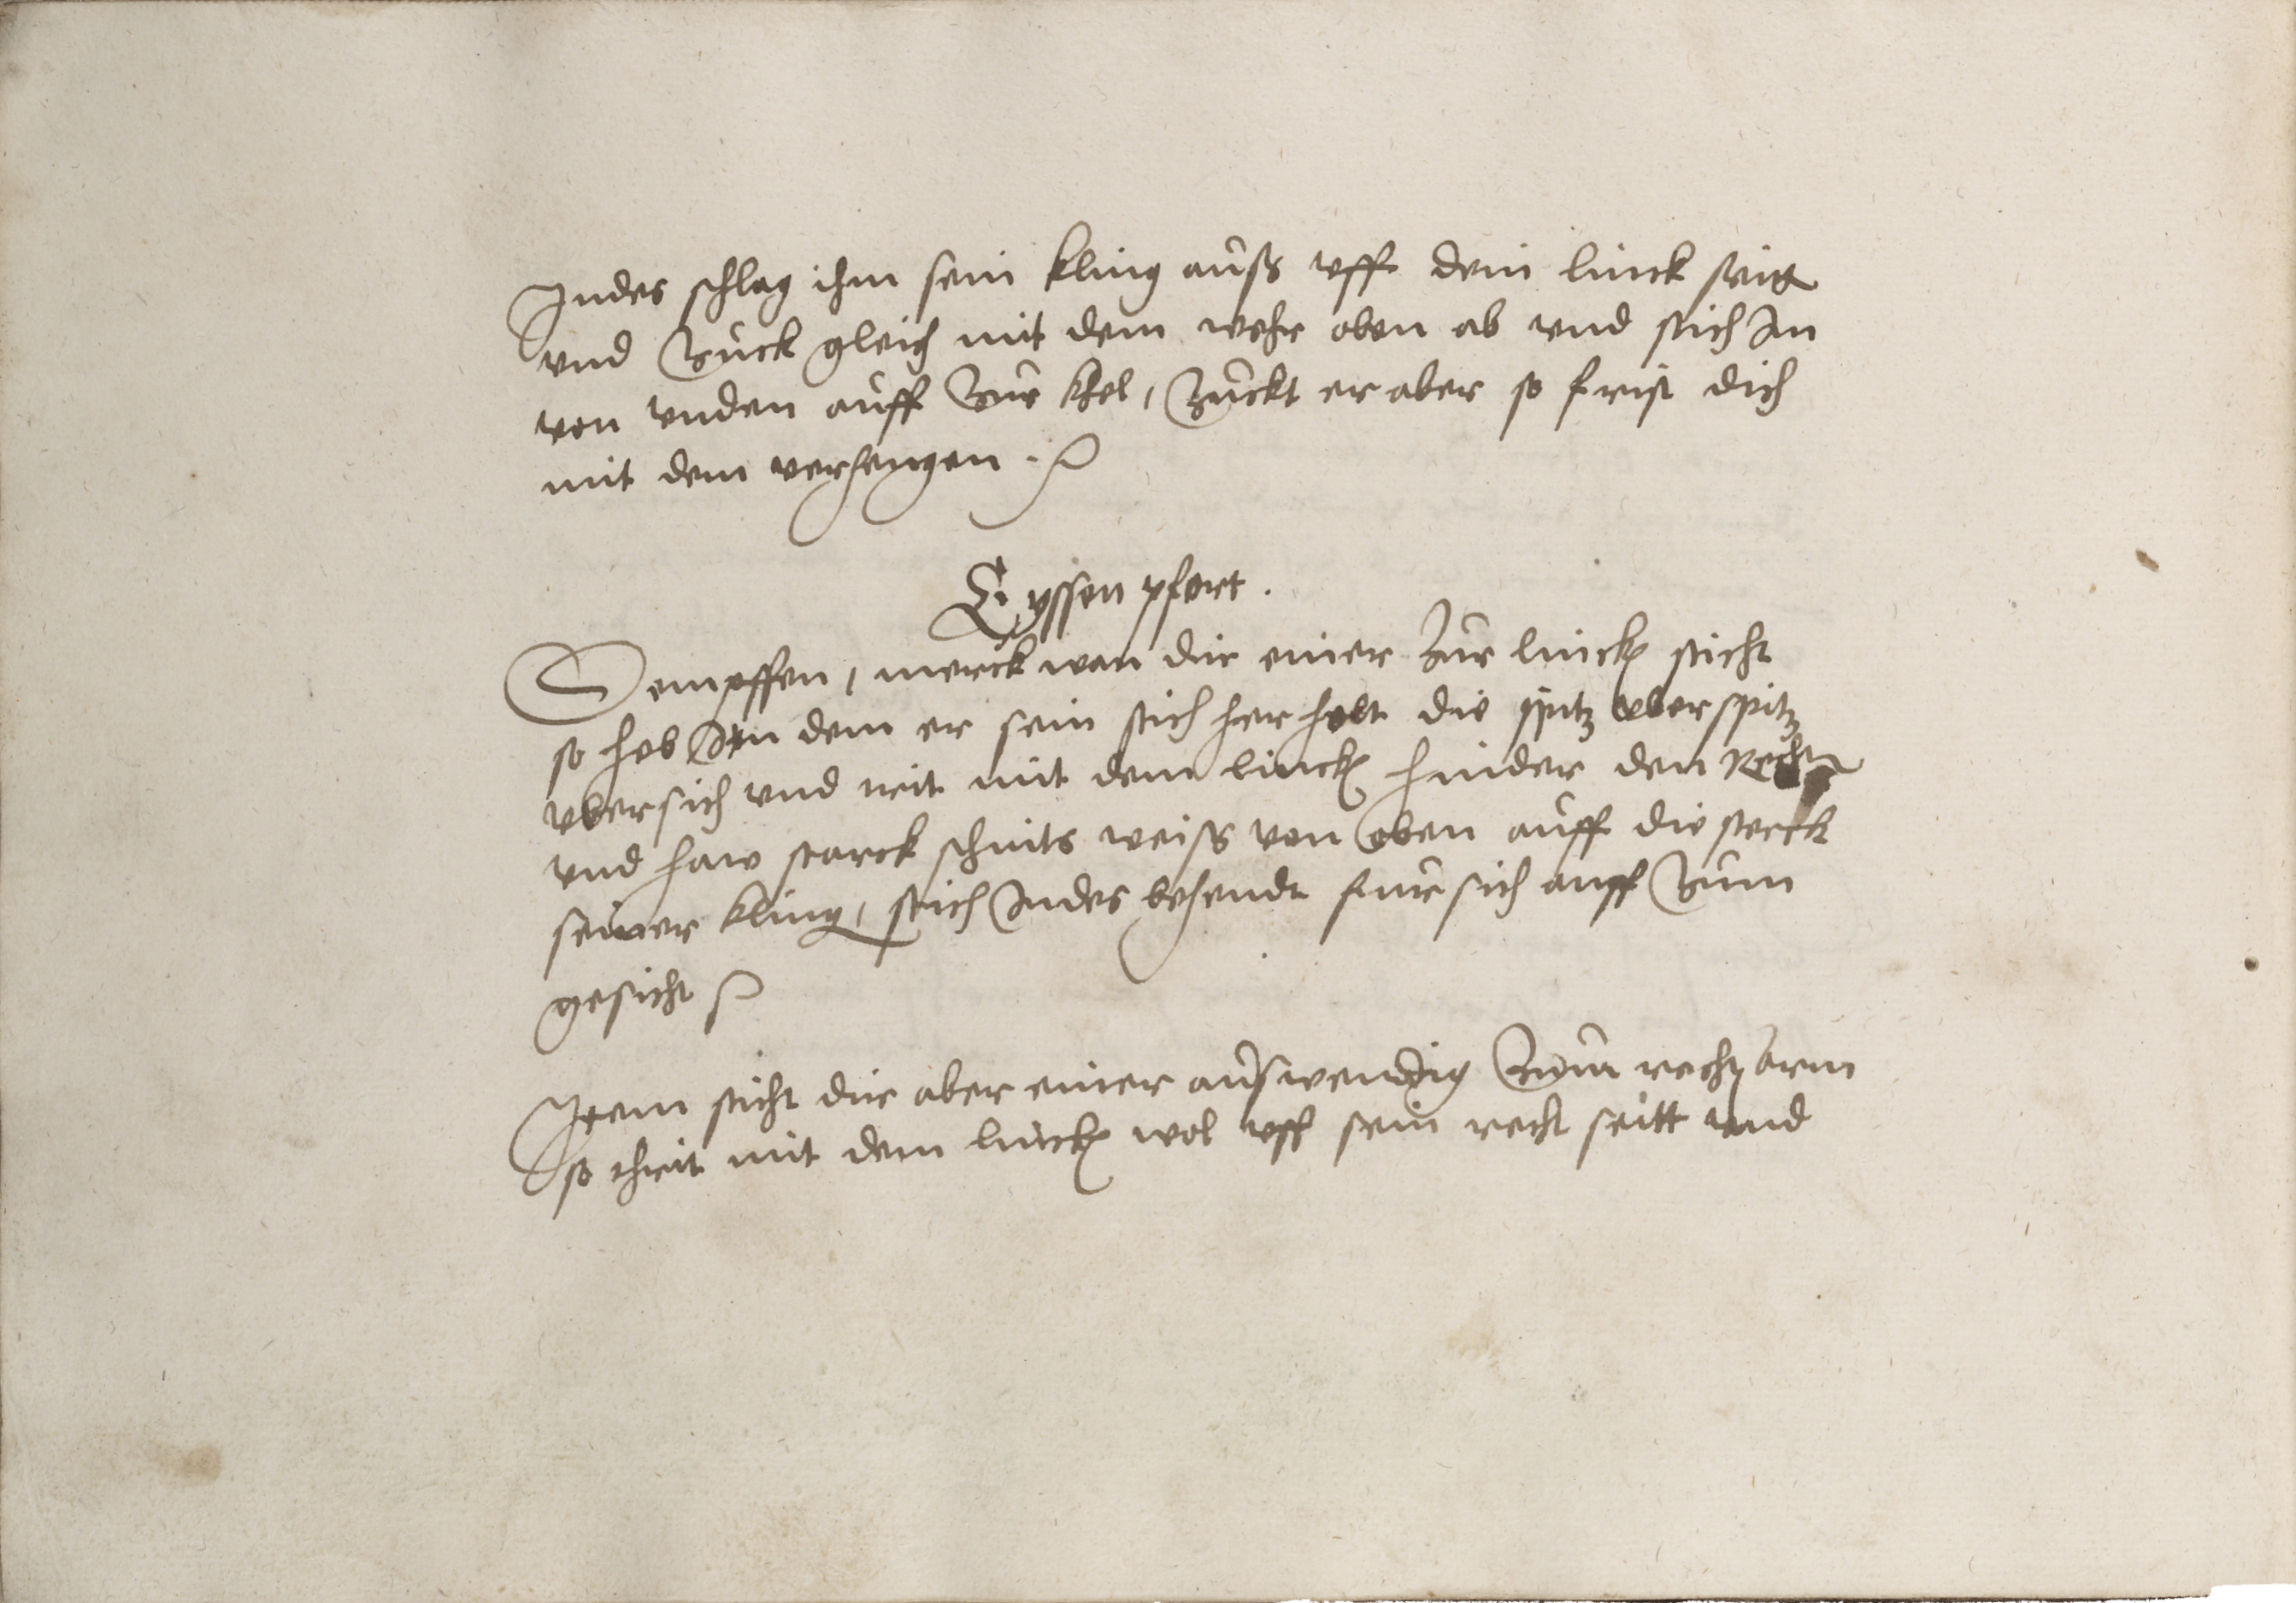 Indes schlag ihm sein kling auß vff dein linck seitt
vnd Zuck gleich mit dem wehr oben ab vnd stich Im
von vnden auff Zur khel, Zuckt er aber so frist dich
mit dem verhengen.
Eyssen pfort.
Dempffen, merck wan dir einer Zur linck sticht
so heb In dem er sein stich her holt die spitz vberspitz
vbersich vnd trit mit dem linck hinder den Recht
vnd haw starck schnits weiß von oben auff die sterck
seiner kling, stich Indes behendt fursich auff Zum
gesicht
Item sticht dir aber einer außwendig Zum recht arm
so thrit mit dem linck wol vff sein recht seitt vnd